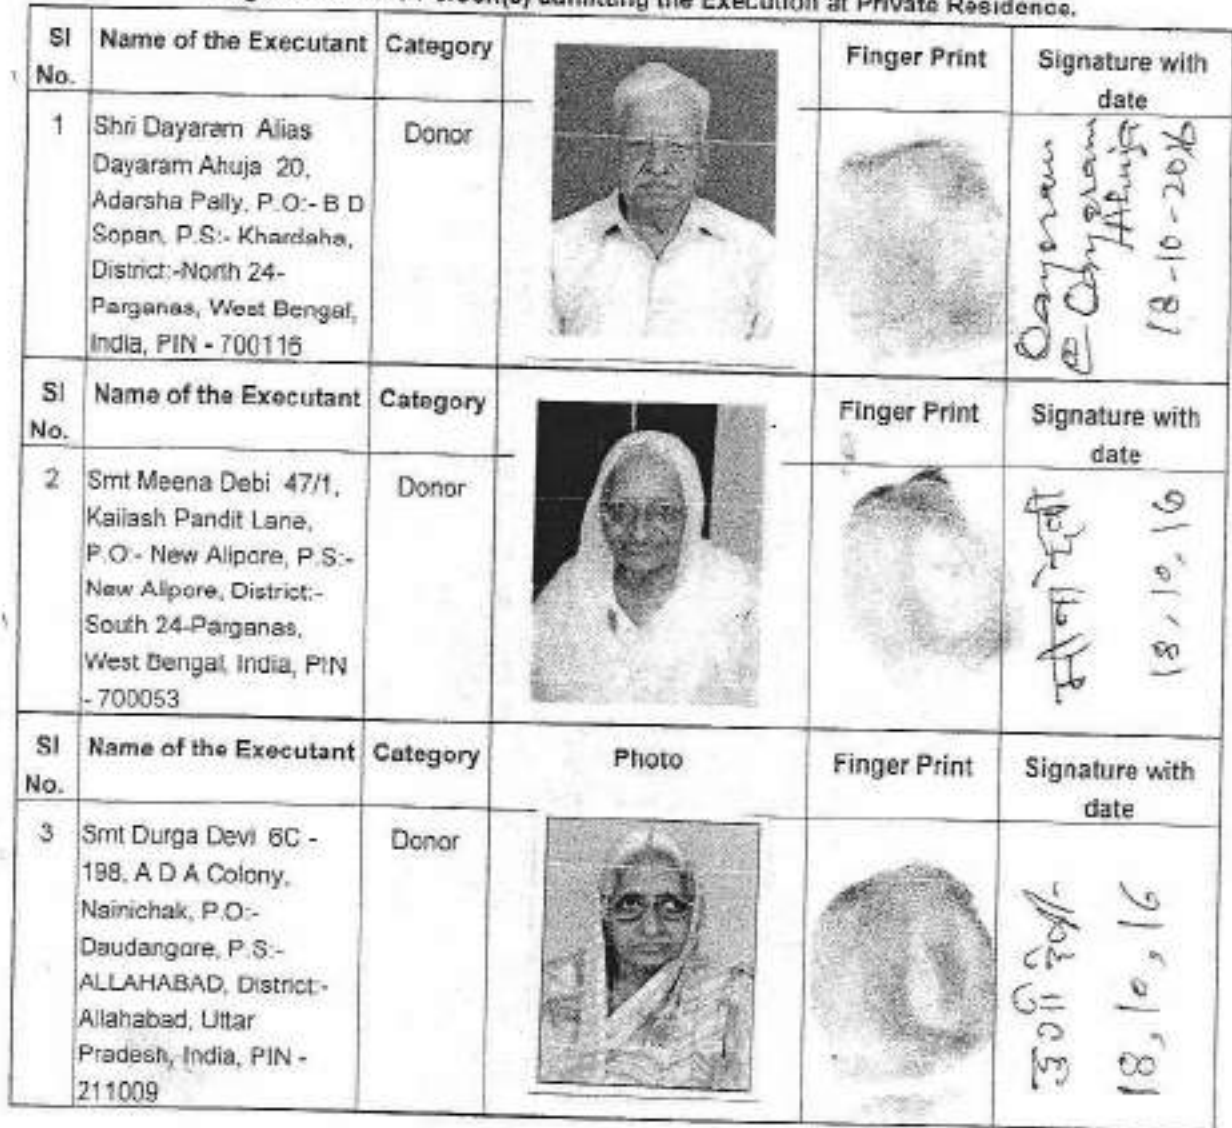 admitting the Execution at Private Residence.
Sl No.
Name of the Executant
Category
Finger Print
Signature with date
1
Shri Dayaram Alias
Dayaram Ahuja 20,
Adarsha Pally, P.O:- B D
Sopan, P.S:- Khardaha,
District:-North 24-
Parganas, West Bengal,
India, PIN - 700116
Donor
Dayaram
@ Dayaram
Ahuja
18-10-2016
Sl No.
Name of the Executant
Category
Finger Print
Signature with date
2
Smt Meena Debi 47/1,
Kailash Pandit Lane,
P.O:- New Alipore, P.S:-
New Alipore, District:-
South 24-Parganas,
West Bengal, India, PIN
- 700053
Donor
18.10.16
Sl No.
Name of the Executant
Category
Photo
Finger Print
Signature with date
3
Smt Durga Devi 6C -
198, A D A Colony,
Nainichak, P.O:-
Daudangore, P.S:-
ALLAHABAD, District:-
Allahabad, Uttar
Pradesh, India, PIN -
211009
Donor
18,10,16